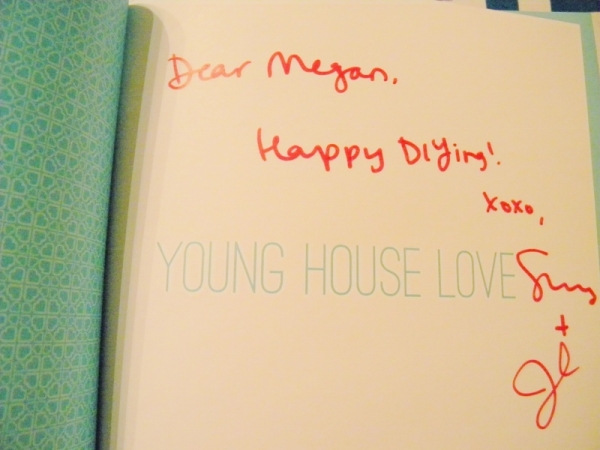 Dear Megan,
Happy DIYing!
xoxo,
YOUNG HOUSE LOVE
+